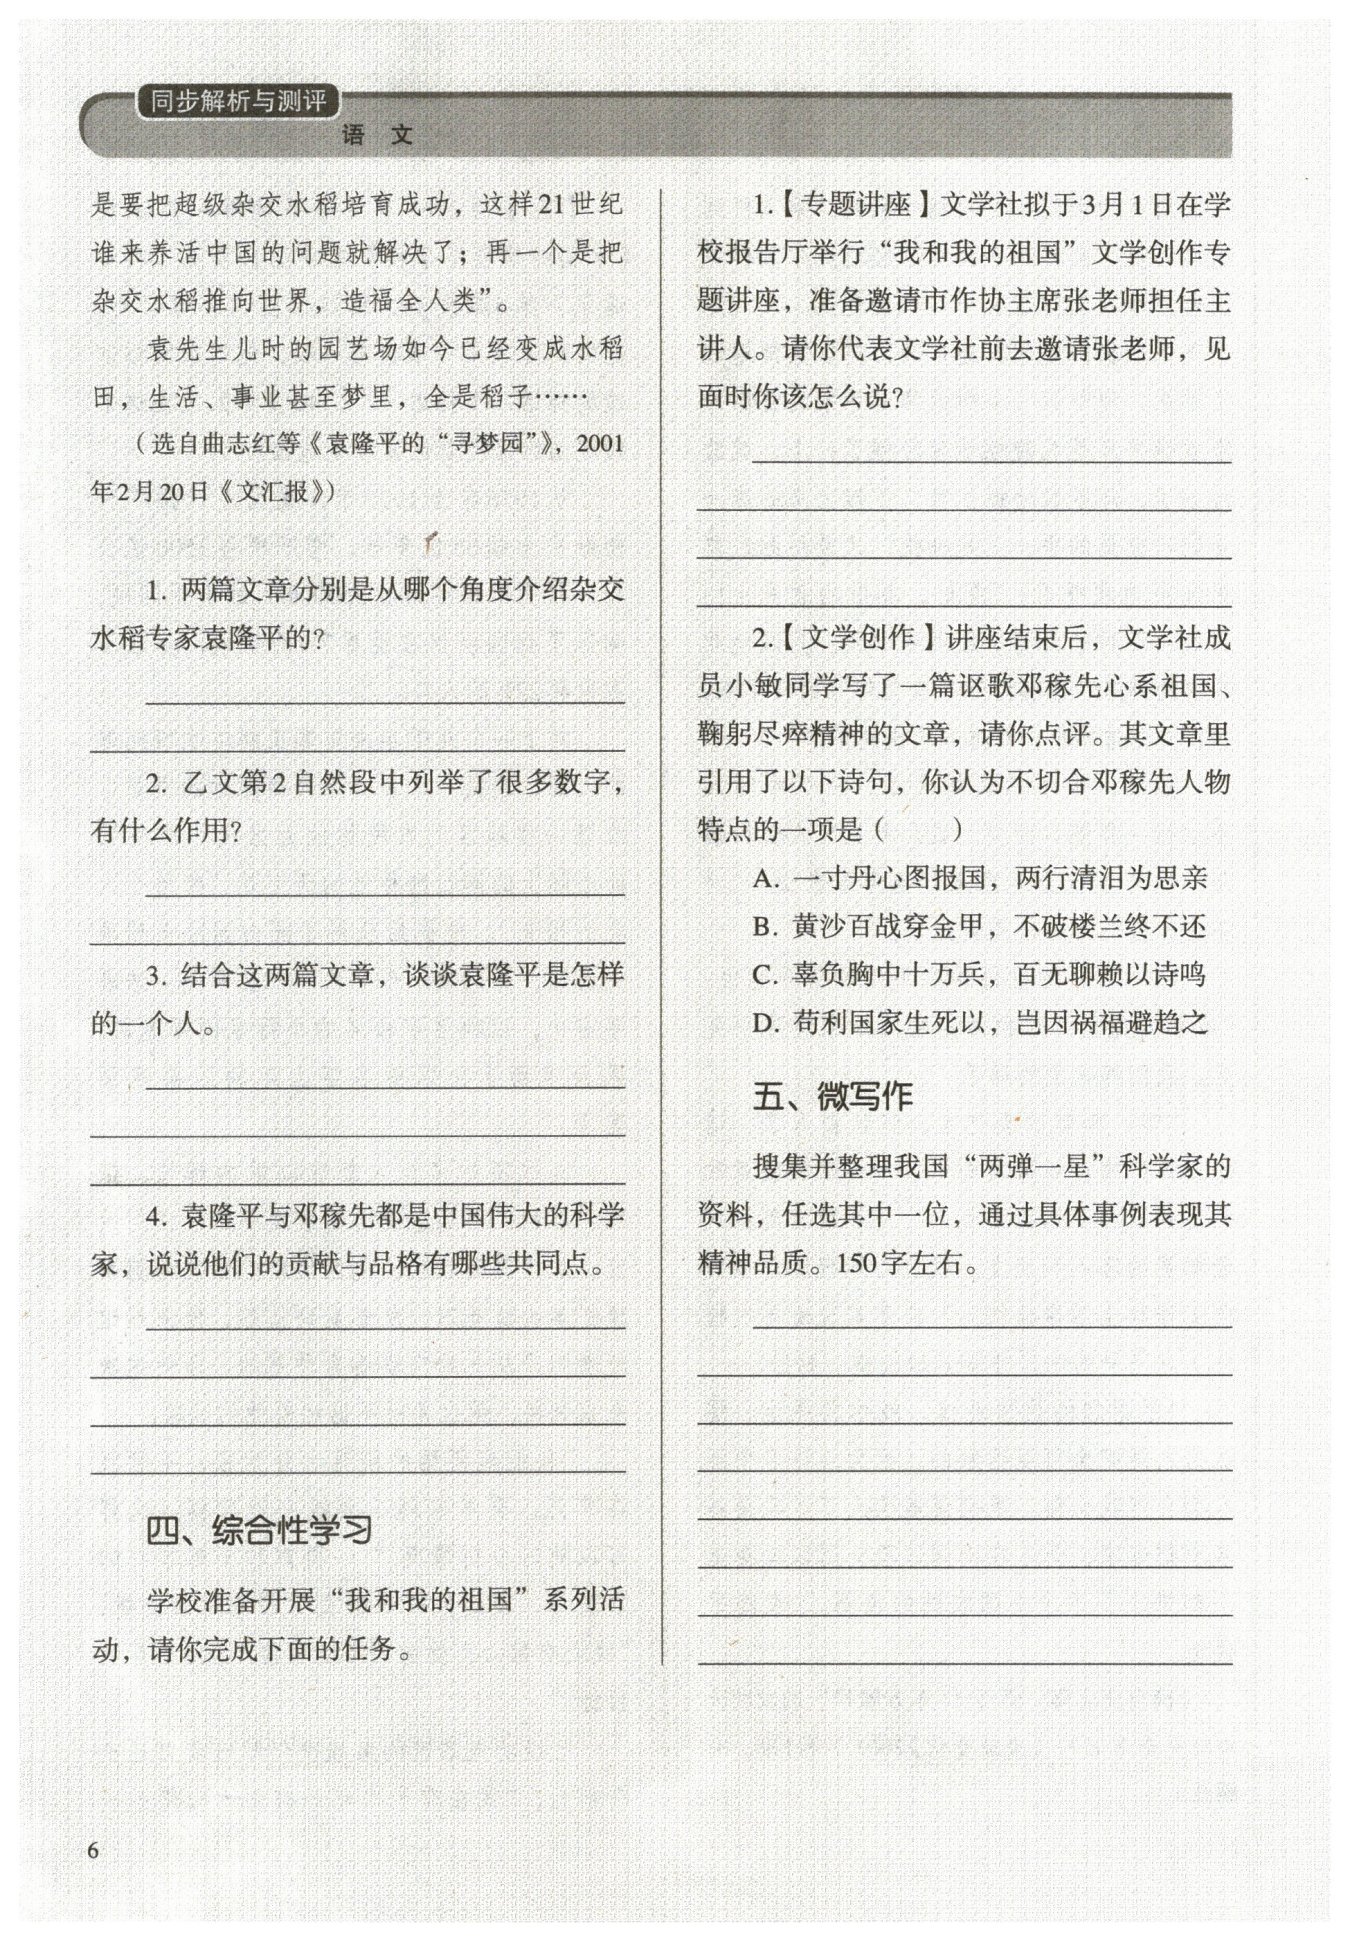 同步解析与测评
语 文
是要把超级杂交水稻培育成功，这样21世纪
谁来养活中国的问题就解决了；再一个是把
杂交水稻推向世界，造福全人类”。
袁先生儿时的园艺场如今已经变成水稻
田，生活、事业甚至梦里，全是稻子……
（选自曲志红等《袁隆平的“寻梦园”》，2001
年2月20日《文汇报》）
1. 两篇文章分别是从哪个角度介绍杂交
水稻专家袁隆平的？
2. 乙文第2自然段中列举了很多数字，
有什么作用？
3. 结合这两篇文章，谈谈袁隆平是怎样
的一个人。
4. 袁隆平与邓稼先都是中国伟大的科学
家，说说他们的贡献与品格有哪些共同点。
四、综合性学习
学校准备开展“我和我的祖国”系列活
动，请你完成下面的任务。
1.【专题讲座】文学社拟于3月1日在学
校报告厅举行“我和我的祖国”文学创作专
题讲座，准备邀请市作协主席张老师担任主
讲人。请你代表文学社前去邀请张老师，见
面时你该怎么说？
2.【文学创作】讲座结束后，文学社成
员小敏同学写了一篇讴歌邓稼先心系祖国、
鞠躬尽瘁精神的文章，请你点评。其文章里
引用了以下诗句，你认为不切合邓稼先人物
特点的一项是（　　）
A. 一寸丹心图报国，两行清泪为思亲
B. 黄沙百战穿金甲，不破楼兰终不还
C. 辜负胸中十万兵，百无聊赖以诗鸣
D. 苟利国家生死以，岂因祸福避趋之
五、微写作
搜集并整理我国“两弹一星”科学家的
资料，任选其中一位，通过具体事例表现其
精神品质。150字左右。
6